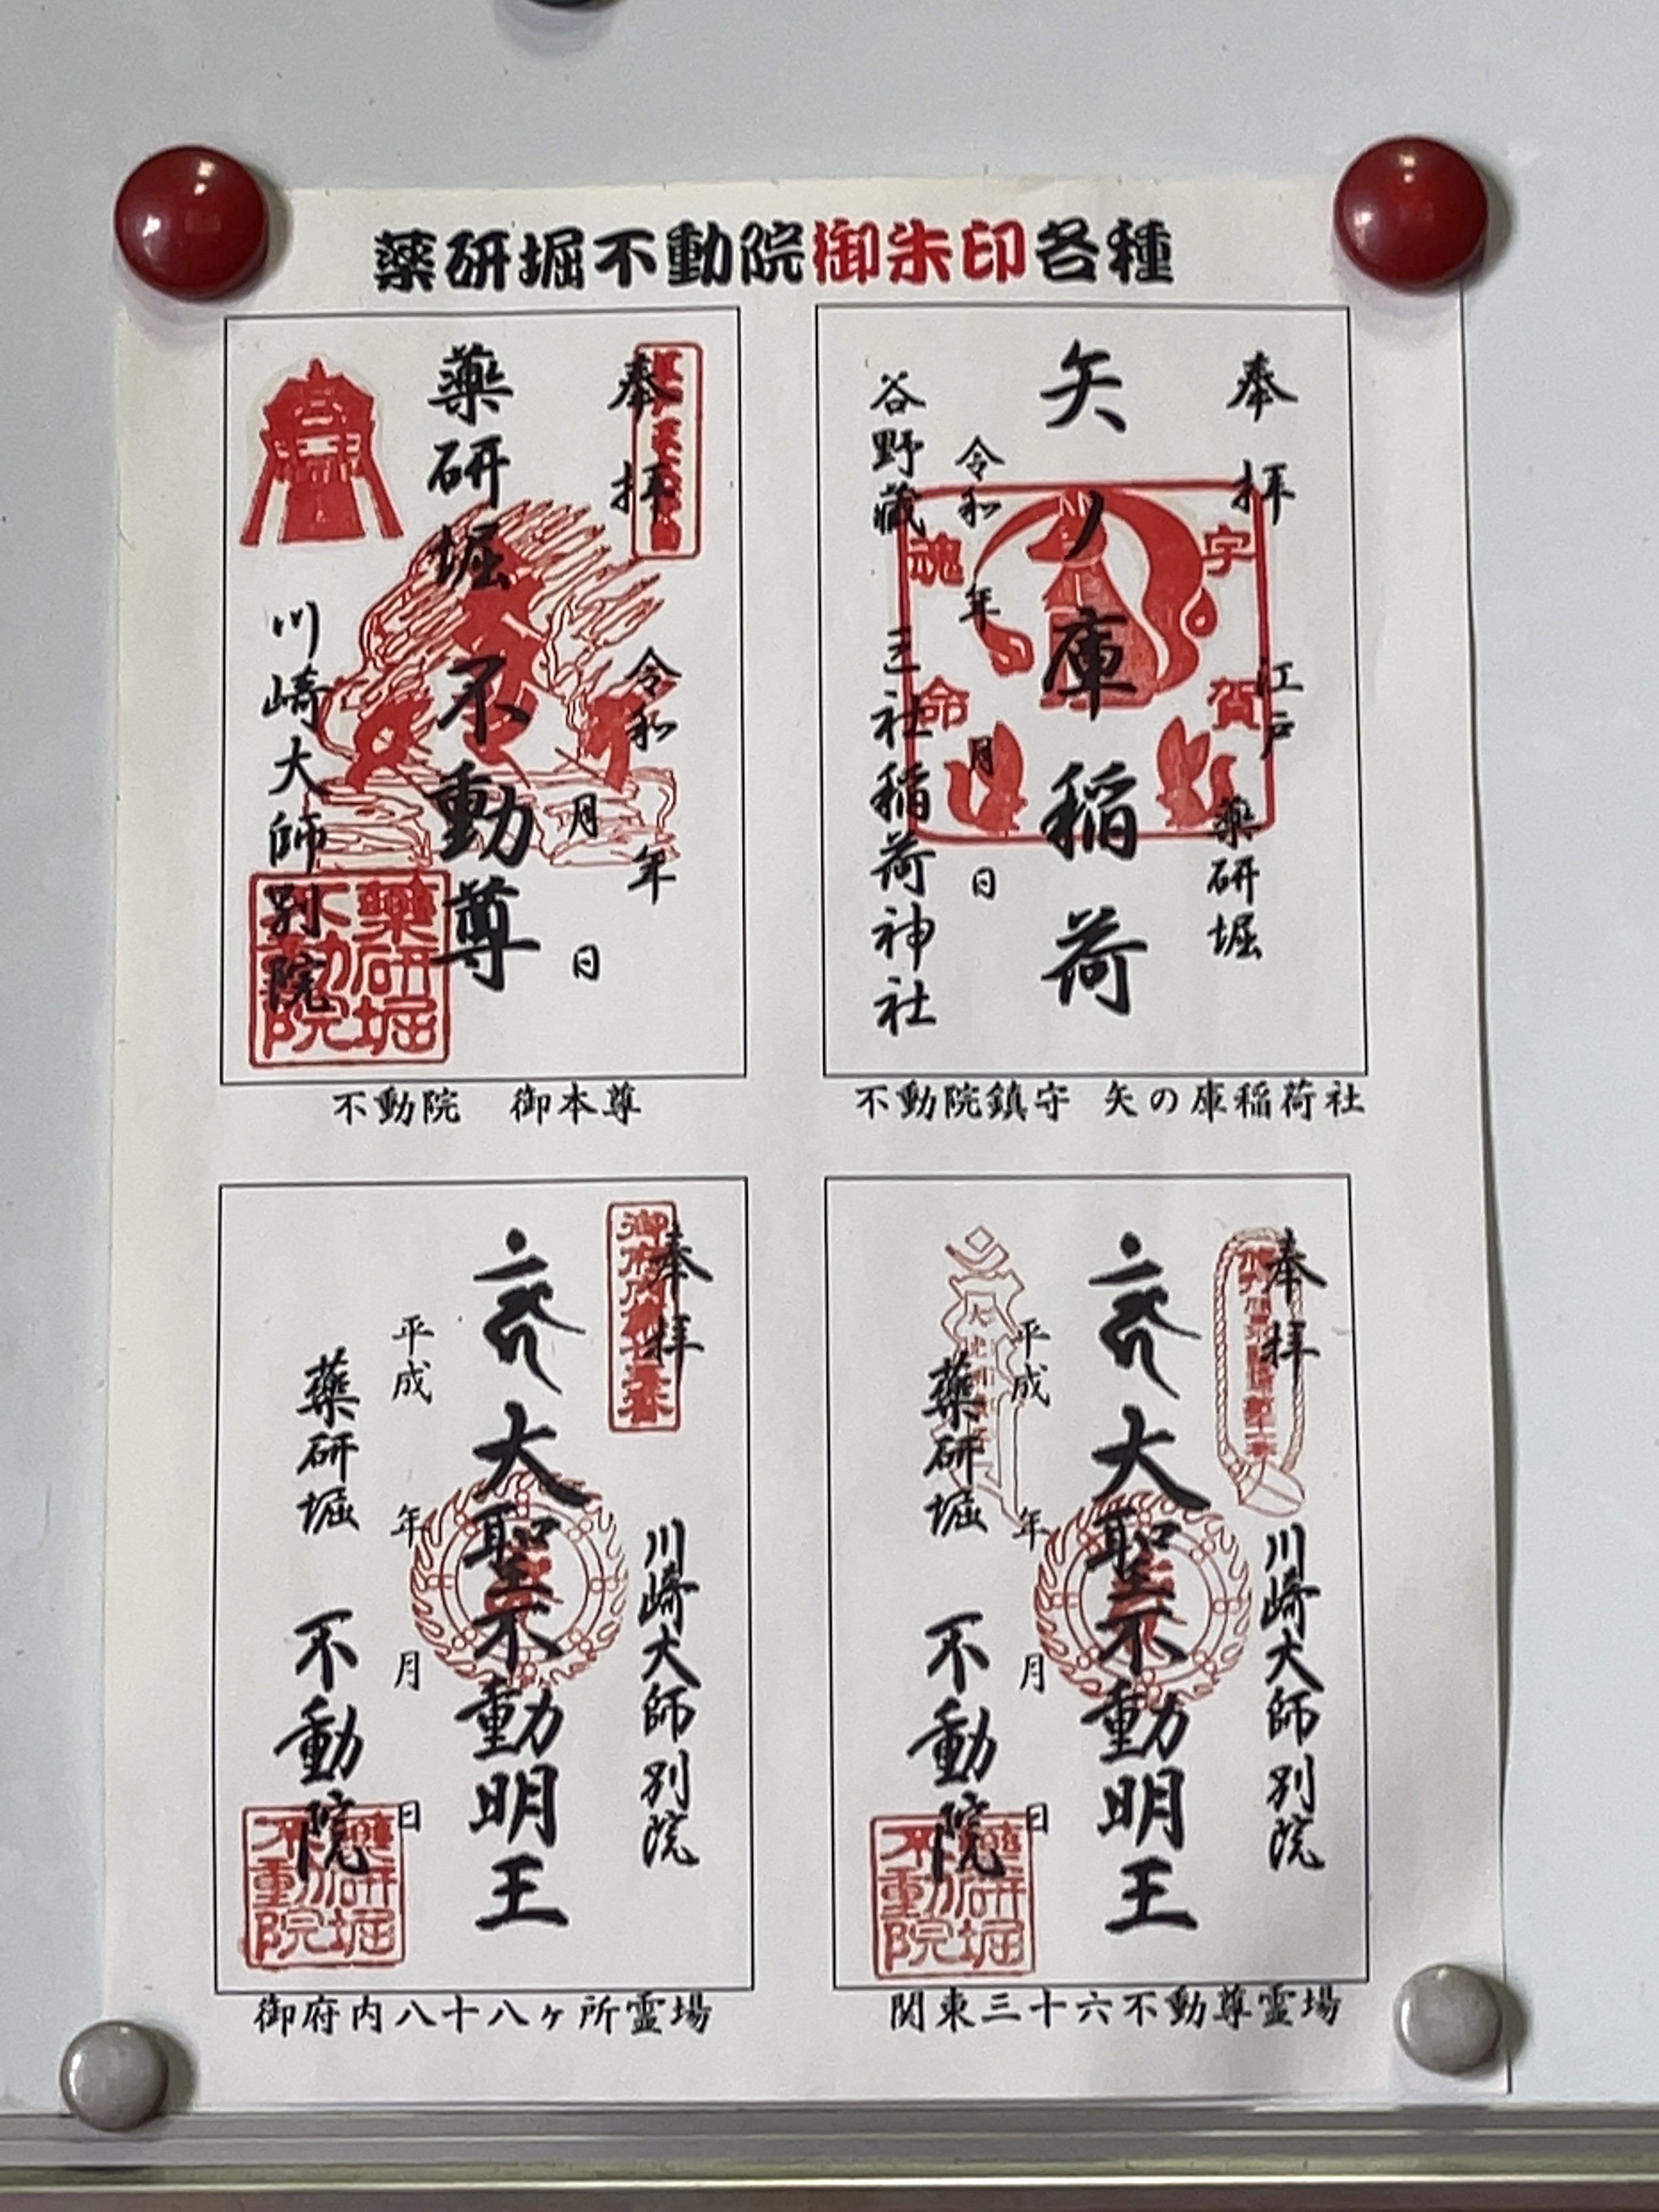 薬研堀不動院御朱印各種
奉拝
令和 年
月 日
薬研堀不動尊
川崎大師別院
薬研堀
不動院
不動院 御本尊
奉拝
江戸
薬研堀
矢ノ庫稲荷
令和 年 月 日
谷野蔵 三社稲荷神社
宇賀
魂命
不動院鎮守 矢の庫稲荷社
奉拝
川崎大師別院
大聖不動明王
平成 年 月 日
薬研堀 不動院
薬研堀
不動院
御府内八十八ヶ所霊場
奉拝
川崎大師別院
大聖不動明王
平成 年 月 日
薬研堀 不動院
薬研堀
不動院
関東三十六不動尊霊場